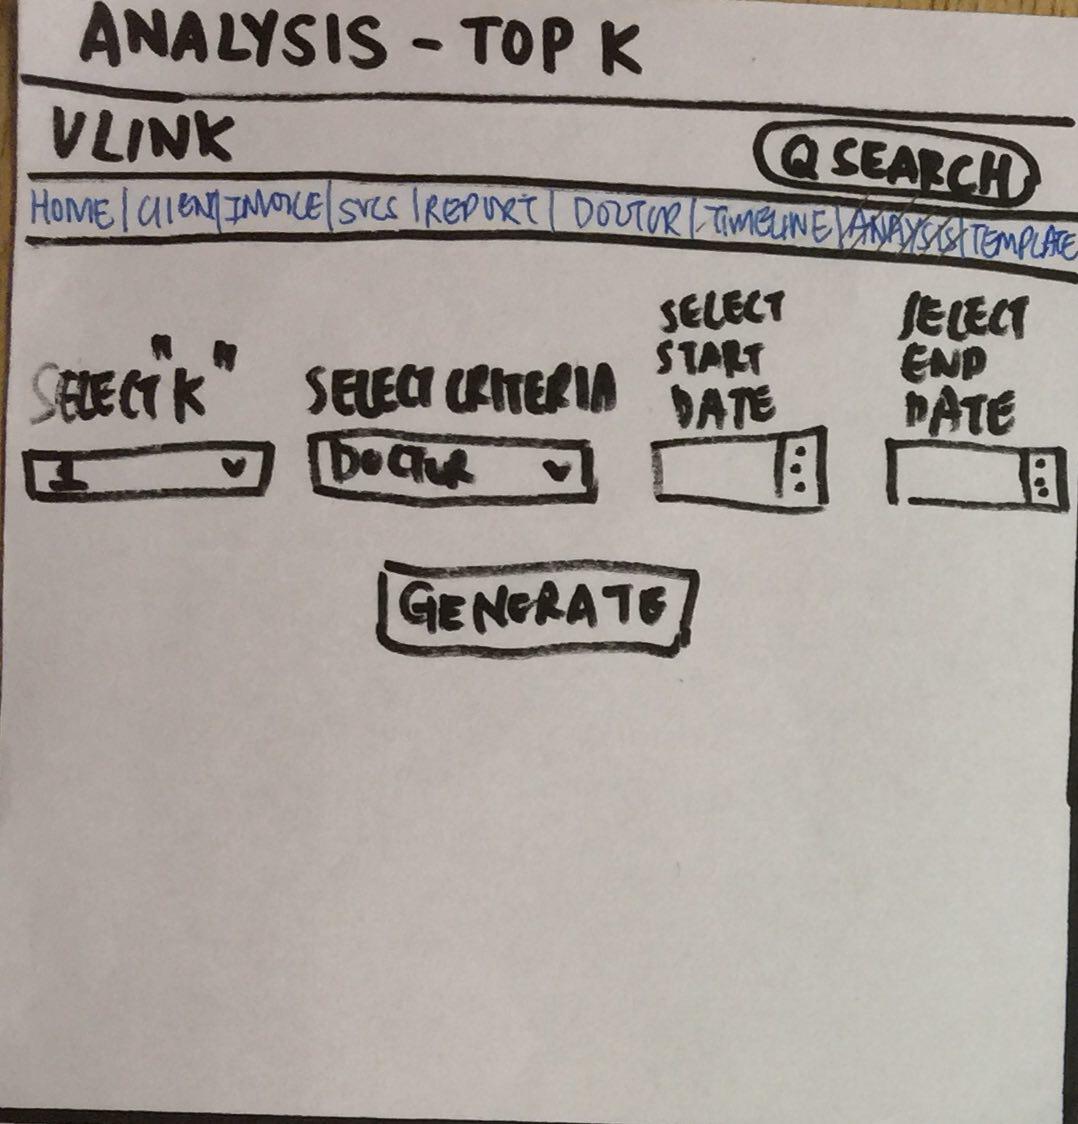 ANALYSIS - TOP K
VLINK
SEARCH
HOME | CLIENT | INVOICE | SVCS | REPORT | DOCTOR | TIMELINE | ANALYSIS | TEMPLATE
SELECT "K"
SELECT CRITERIA
SELECT
START
DATE
SELECT
END
DATE
1
DOCTOR
GENERATE